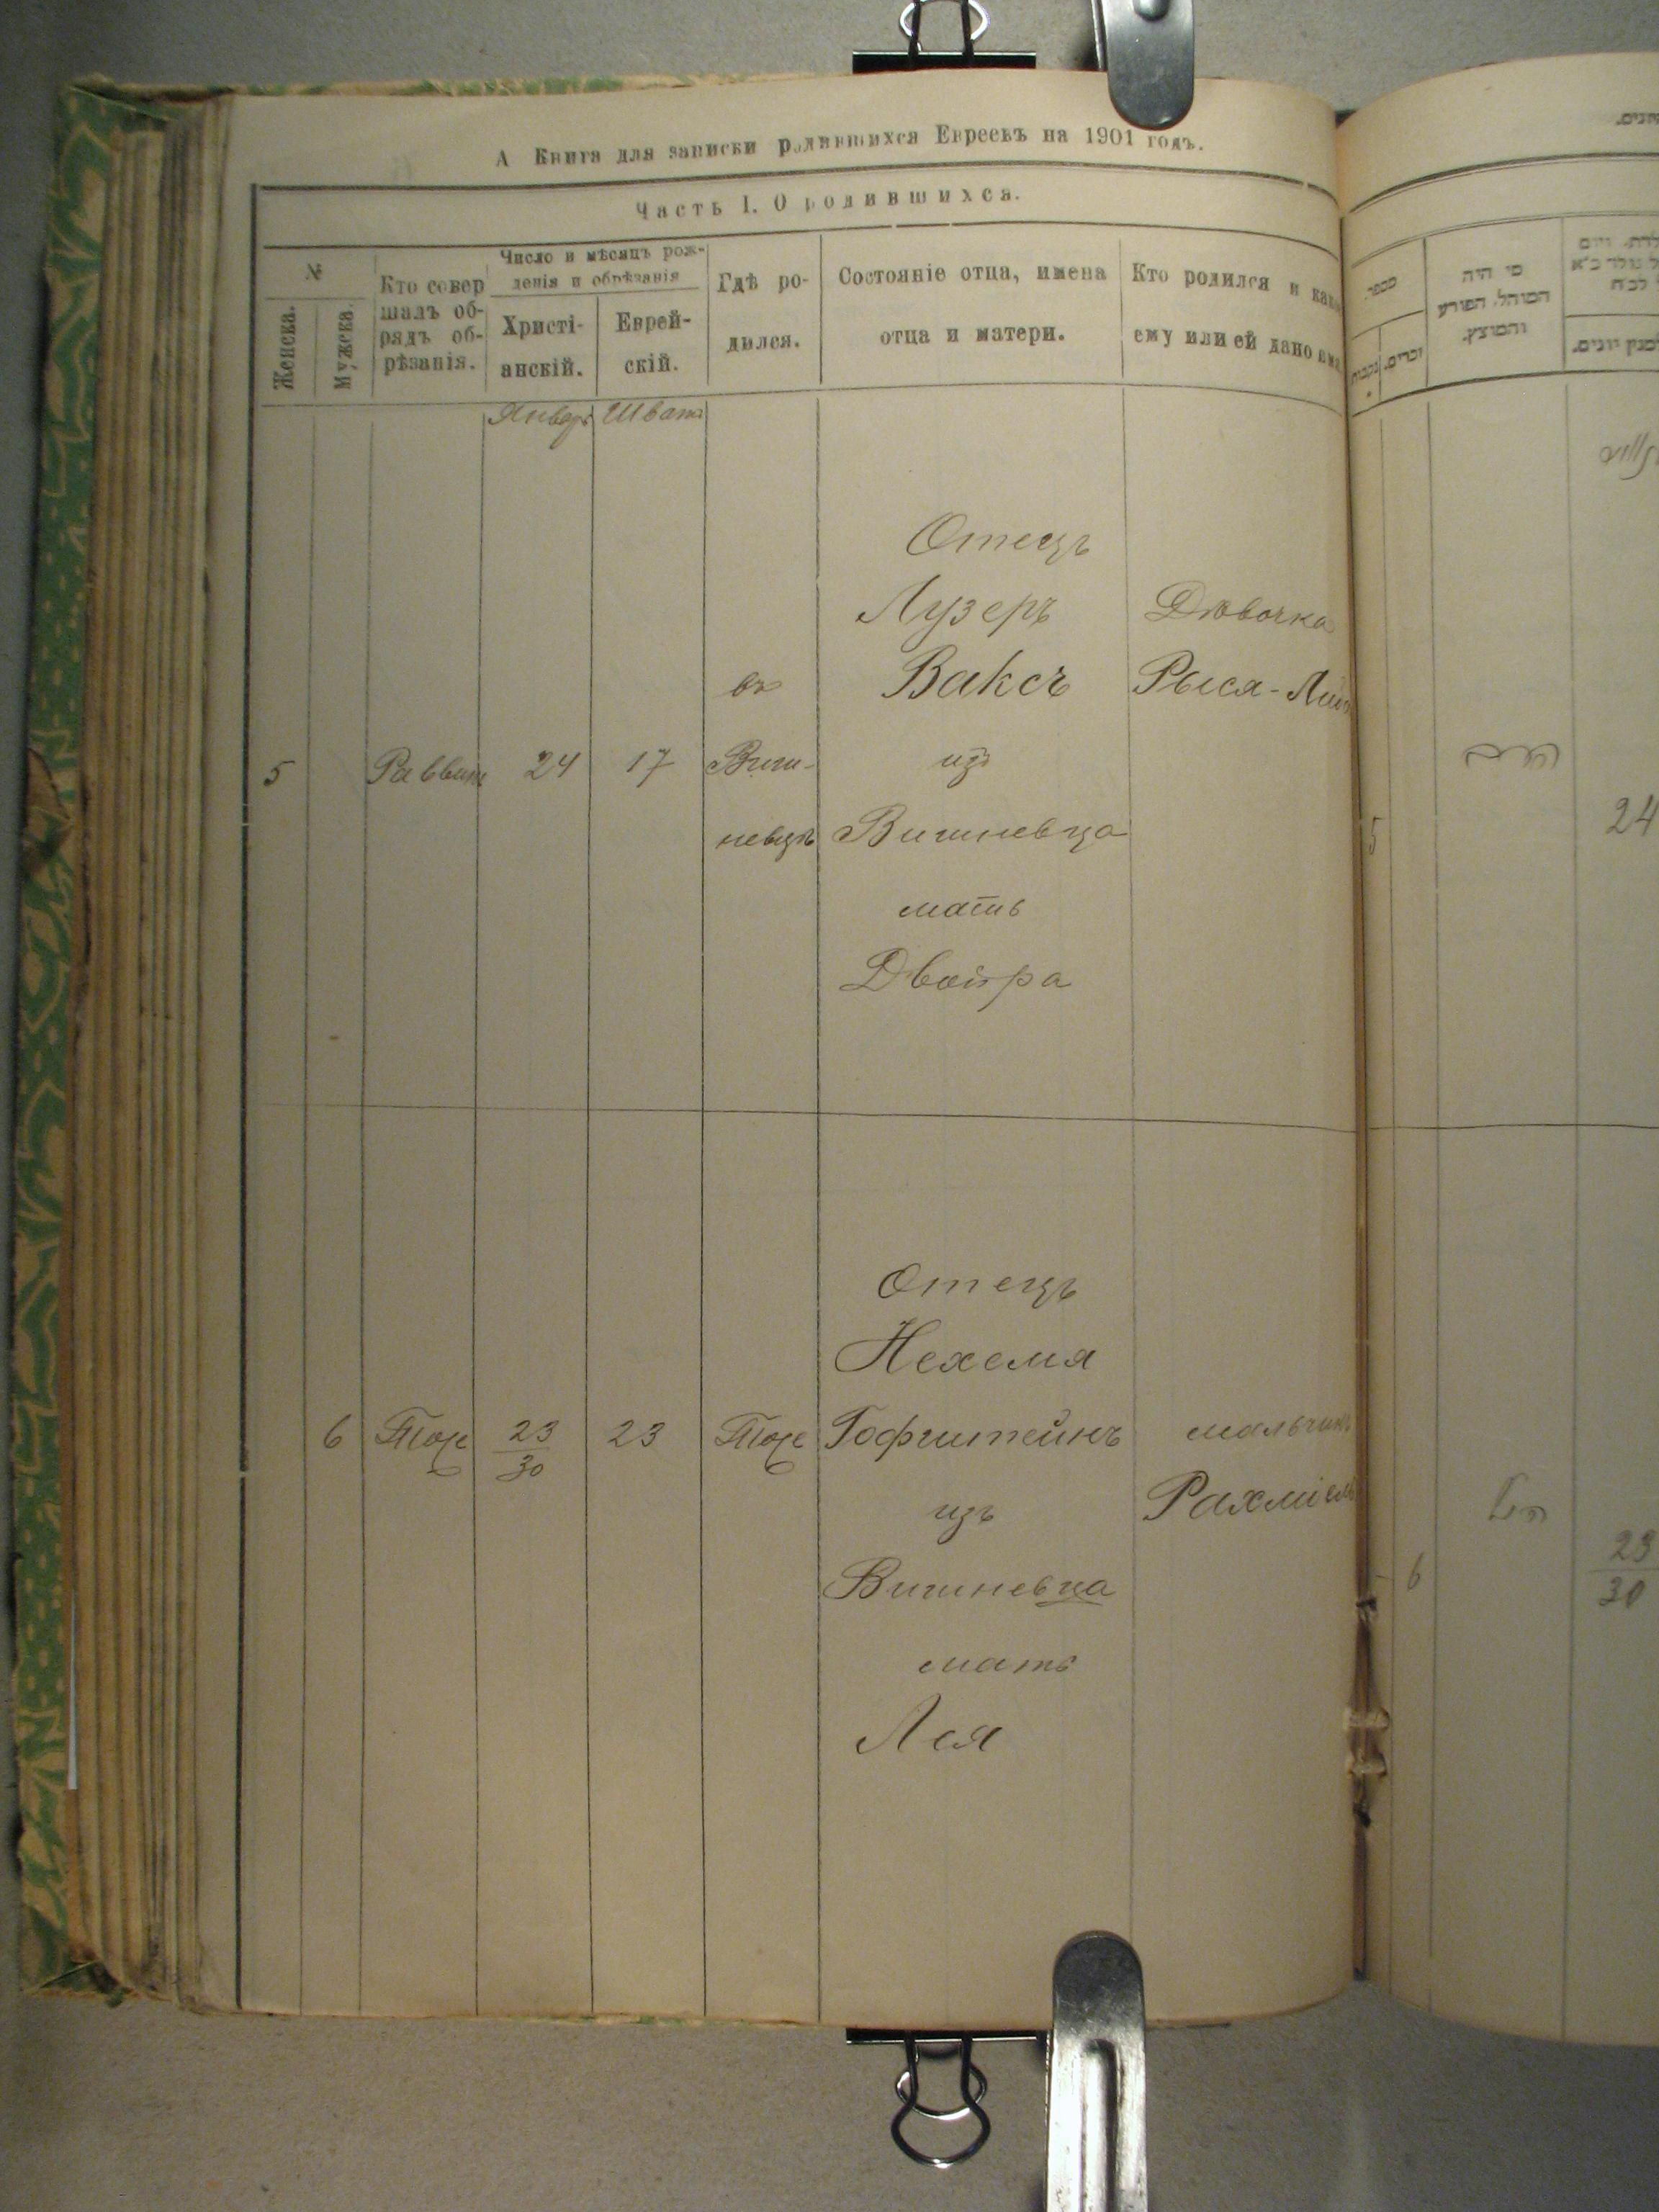 А Книга для записки родившихся Евреевъ на 1901 годъ.
Часть I. О родившихся.
№
Женска.
Мужеска.
Кто совер
шалъ об-
рядъ об-
рѣзанія.
Число и мѣсяцъ рож-
денія и обрѣзанія
Христі-
анскій.
Еврей-
скій.
Гдѣ ро-
дился.
Состояніе отца, имена
отца и матери.
Кто родился и како
ему или ей дано имя
Январь Шватъ
5 Раввинъ 24 17
въ
Виш-
невцѣ
Отецъ
Лузеръ
Ваксъ
изъ
Вишневца
мать
Двойра
Дѣвочка
Рыся-
6 Тоже 23 23 Тоже
30
Отецъ
Нехемя
Гофштейнъ
изъ
Вишневца
мать
Лея
мальчикъ
Рахміель
מספר
נקבות
זכרים.
מי היה
המוהל, הפורע
והמוצץ.
5
24
6
23
30